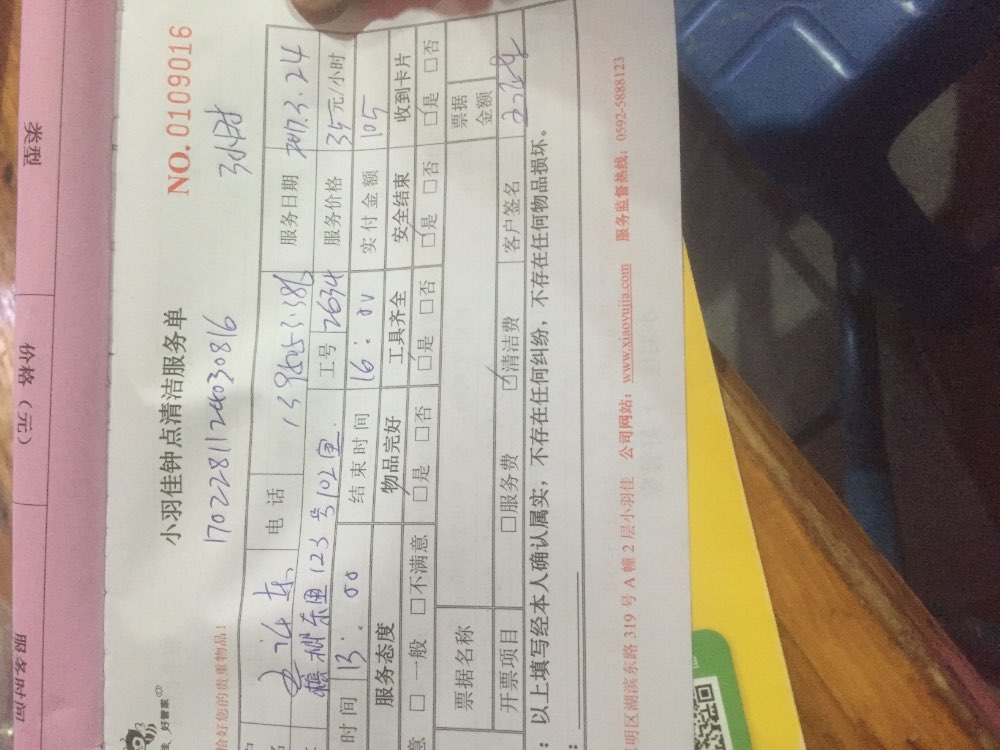 类型
价格（元）
服务时间
小羽佳钟点清洁服务单
NO. 0109016
1702281124030816 3小时
好管家
恰好您的贵重物品！
电话 服务日期 2017.3.24
东渡123号102室 工号 2634 服务价格 35元/小时
时间 13:00 结束时间 16:00 实付金额 105
服务态度 物品完好 工具齐全 安全结束 收到卡片
意 □一般 □不满意 □是 □否 □是 □否 □是 □否 □是 □否
票据名称 票据金额
开票项目 □服务费 □清洁费 客户签名
以上填写经本人确认属实，不存在任何纠纷，不存在任何物品损坏。
明区湖滨东路319号A幢2层小羽佳 公司网站：www.xiaoyujia.com 服务监督热线：0592-5888123